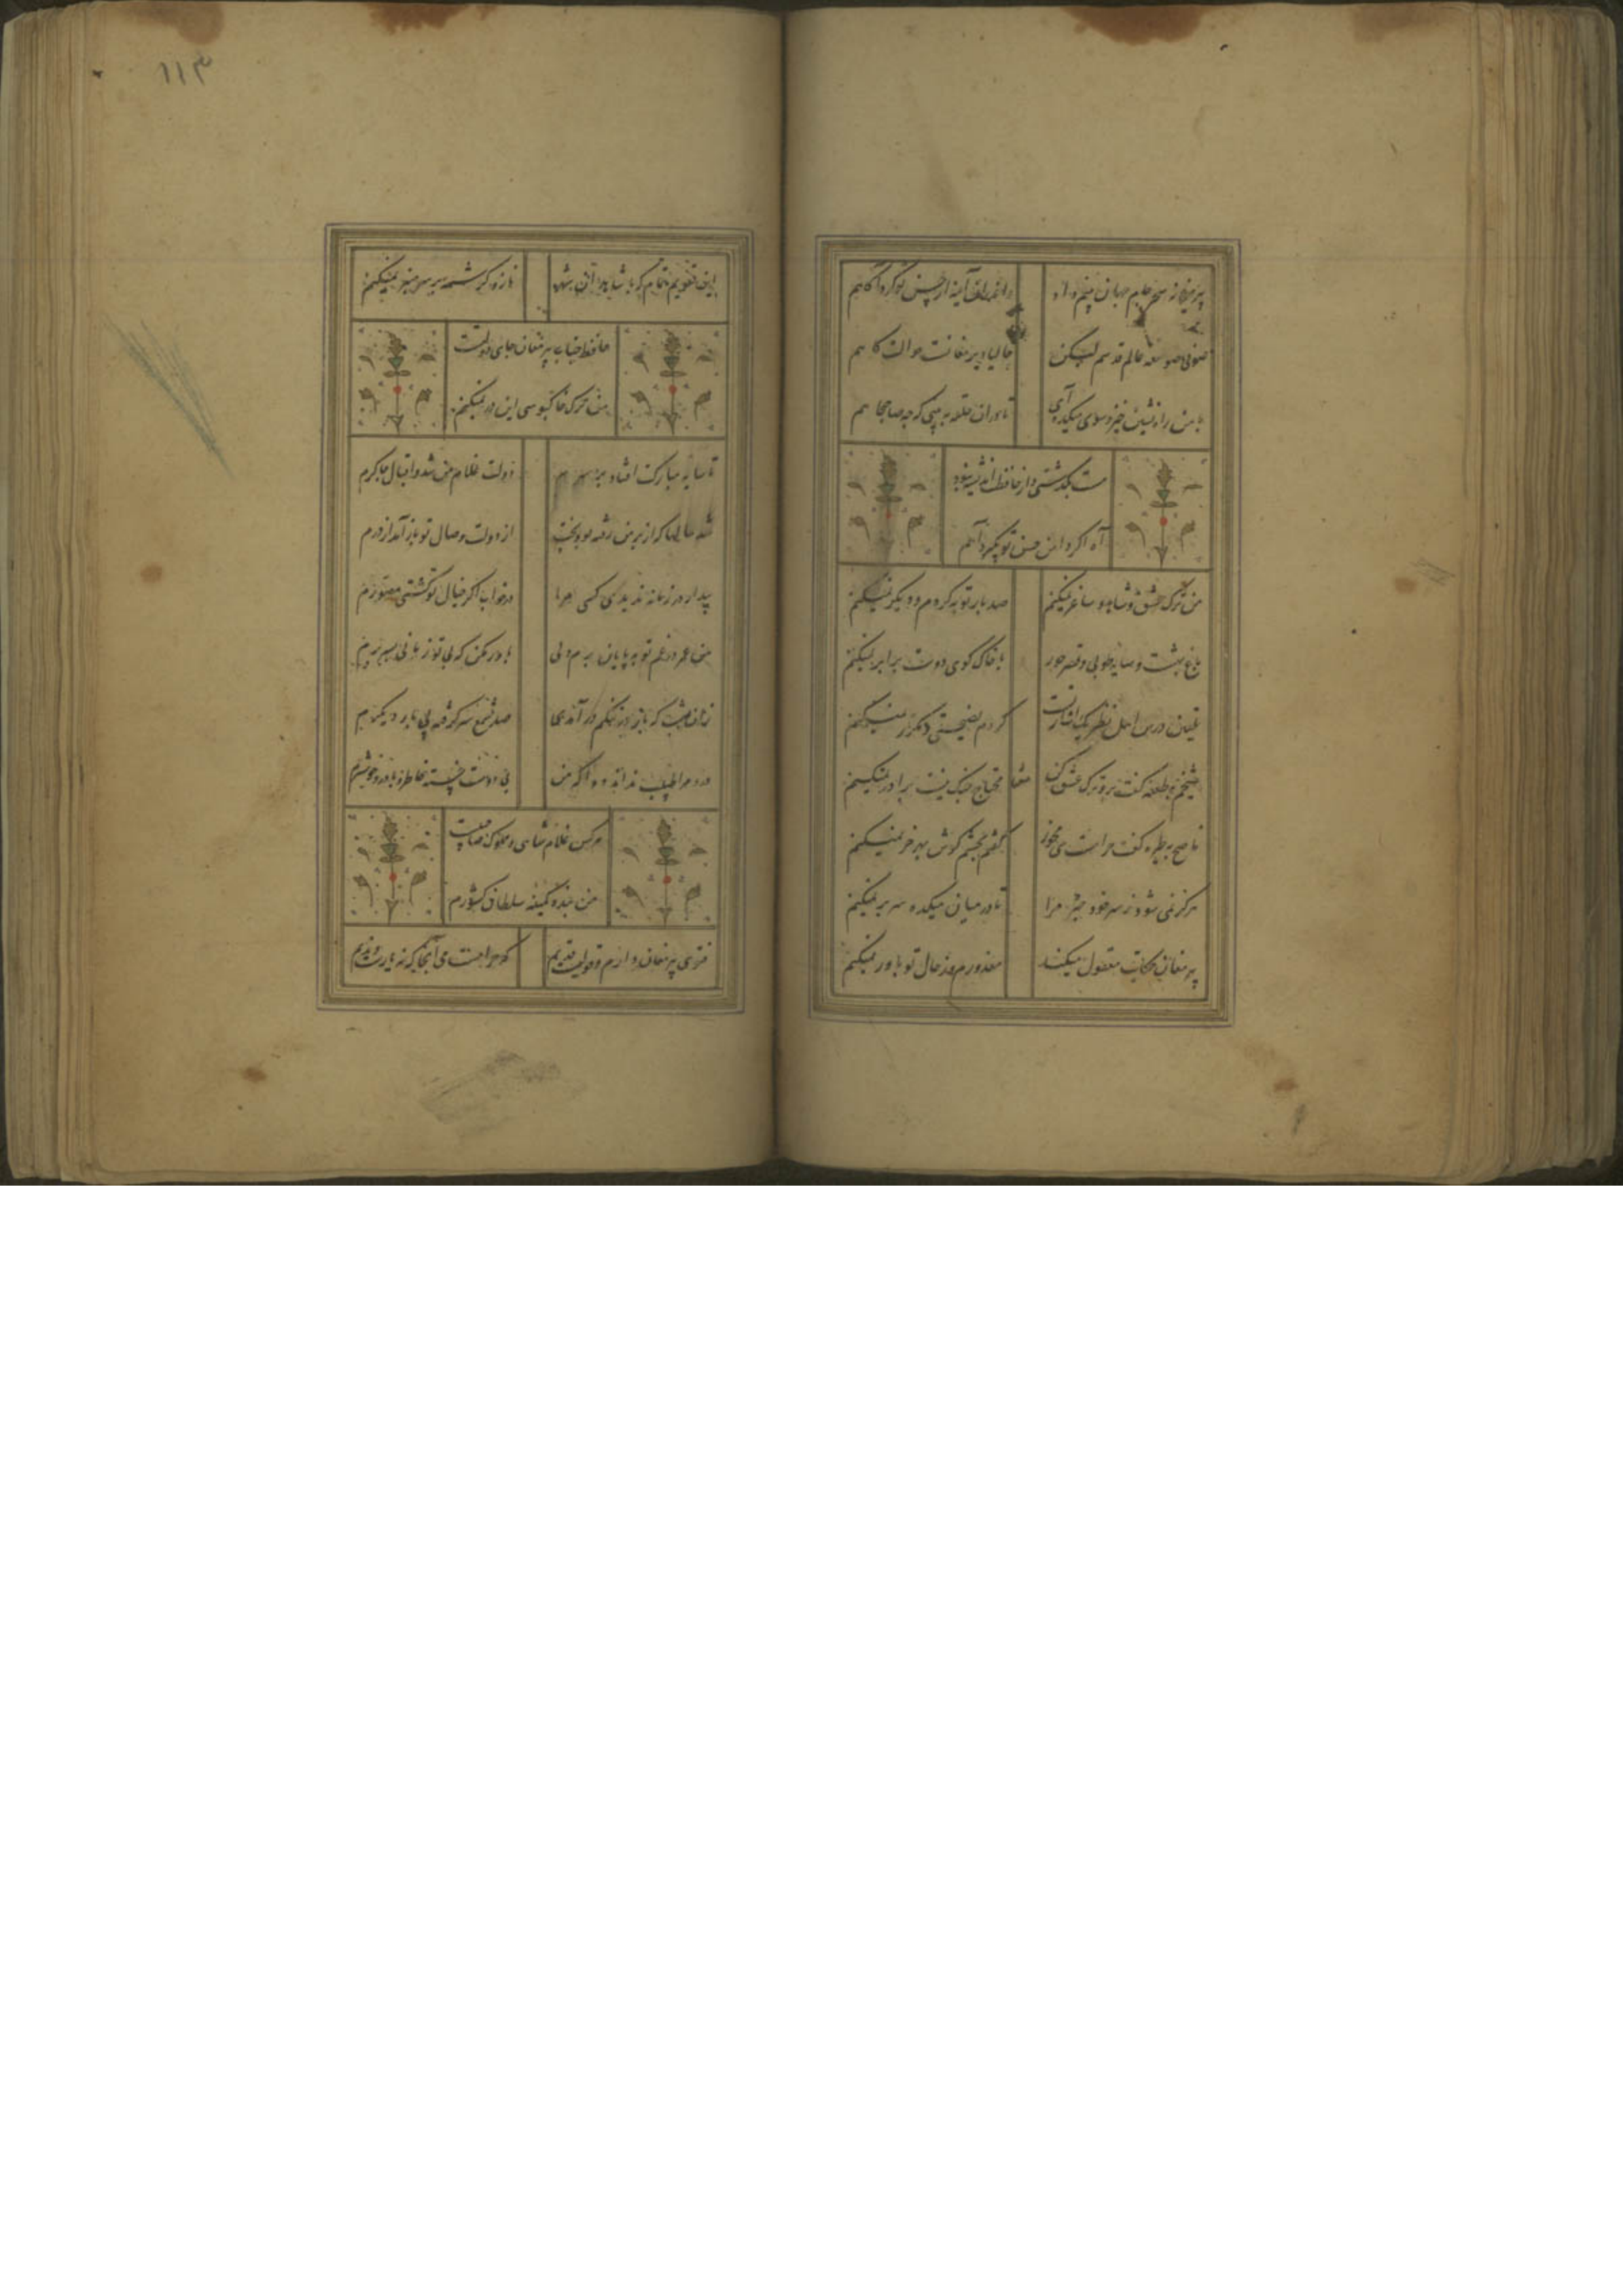 پیر میخانه سحر جام جهان بینم داد واندران آینه از حسن تو کرد آگاهم
صوفی صومعه عالم قدسم لیکن حالیا دیر مغانست حوالت کاهم
با من راه نشین خیز و سوی میکده آی تا دران حلقه به بینی که چه صاحب جاهم
مست بگذشتی و از حافظت اندیشه نبود
آه اگر دامن حسن تو بگیرد آهم
من ترک عشق و شاهد و ساغر نمیکنم صد بار توبه کردم و دیگر نمیکنم
باغ بهشت و سایه طوبی و قصر حور با خاک کوی دوست برابر نمیکنم
تلقین درس اهل نظر یک اشارتست کردم نصیحتی و مکرر نمیکنم
شیخم به طعنه گفت برو ترک عشق کن محتاج جنگ نیست برادر نمیکنم
ناصح به طیره گفت حرامست می مخور گفتم بچشم گوش بهر خر نمیکنم
هرگز نمی شود ز سر خود خبر مرا تا در میان میکده سر بر نمیکنم
پیر مغان حکایت معقول میکند معذورم ار محال تو باور نمیکنم
۱۱۳
این تقویم تمام که با شاهدان شهر ناز و کرشمه بر سر منبر نمیکنم
حافظ جناب پیر مغان جای دولتست
من ترک خاکبوسی این در نمیکنم
تا سایه مبارکت افتاد بر سرم دولت غلام من شد و اقبال چاکرم
شد سالها که از بر من رفته بود بخت از دولت وصال تو باز آمد از درم
بیدار در زمانه ندیدی کسی مرا در خواب اگر خیال تو گشتی مصورم
من عمر در غم تو به پایان برم ولی باور مکن که بی تو زمانی بسر برم
زان شب که باز در دل تنگم در آمدی صد شمع بر گرفته
درد مرا طبیب نداند دوا که من بی دوست خسته خاطر و با درد خوشترم
هر کس غلام شاهی و مملوک صاحبیست
من بنده کمینه سلطان کشورم
فتوی پیر مغان دارم و قولیست قدیم که حرامست می آنجا که نه یارست ندیم